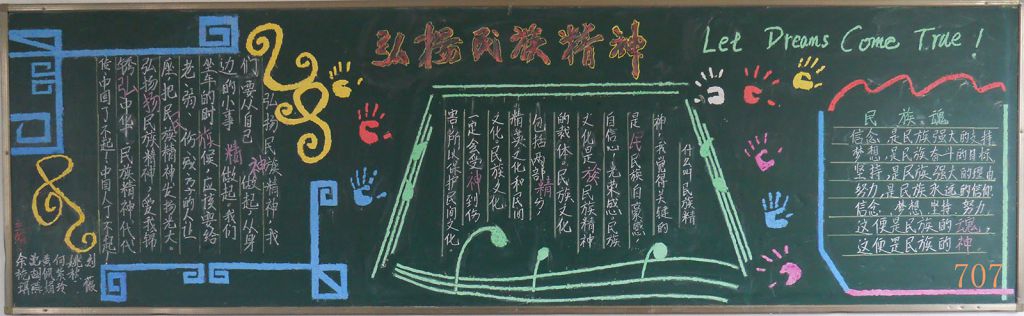 弘扬民族精神
Let Dreams Come True!
弘扬民族精神,我
们要从自己做起,从身
边的小事做起,我们
坐车的时候,应该要给
老、弱、伤残之的人让
座,把民族精神发扬光大。
弘扬民族精神,爱我锦
锈中华,民族精神代代
传,中国了不起!中国人了不起!
什么叫民族精
神,我觉得关键的
是民族自豪感、
自信心、光荣感,民族
文化是民族精神
的载体,民族文化
包括两部份,
精英文化和民间
文化,民族文化
一定会受到伤
害所以保护民间文化。
民族魂
信念,是民族强大的支持
梦想,是民族奋斗的目标
坚持,是民族强大的理由
努力,是民族永远的信仰
信念,梦想,坚持,努力,
这便是民族的魂,
这便是民族的神。
707